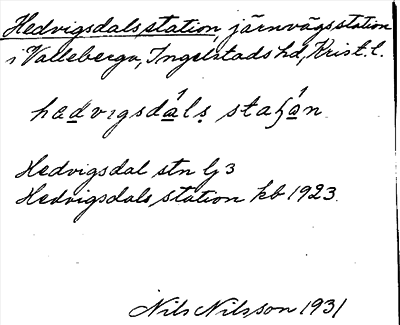 Hedvigsdals station, järnvägsstation
i Valleberga, Ingelstads hd, Krist. l.
hedvigsdáls staʃán
Hedvigsdal stn lj 3
Hedvigsdals station kb 1923.
Nils Nilsson 1931